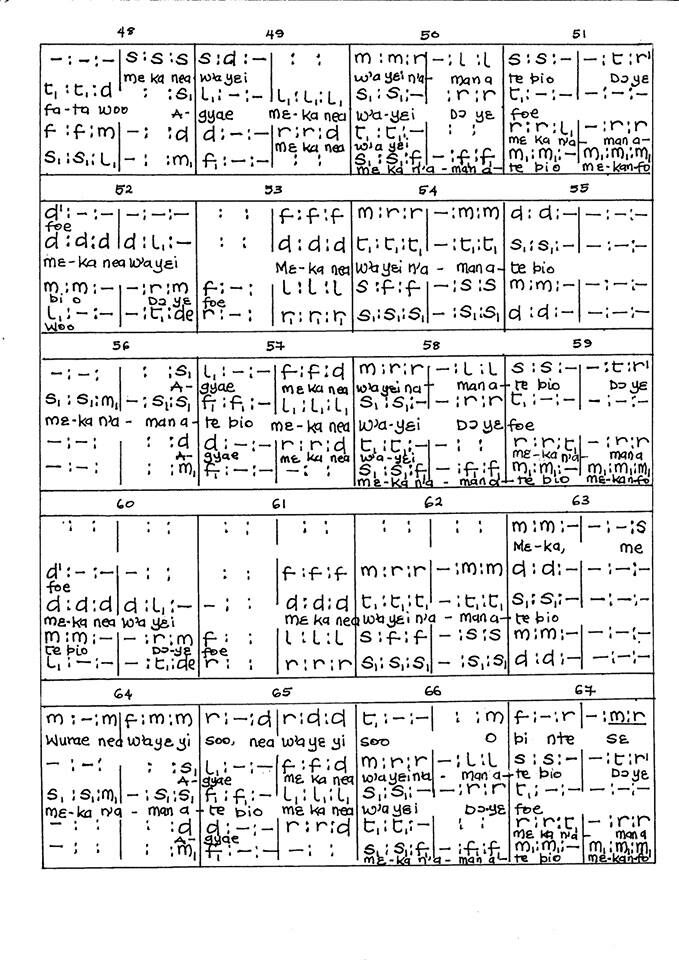 48 49 50 51
– : – : – | s : s : s | s : d : – | : : | m : m : r | – : l : l | s : s : – | – : t : r'
me ka nea wayei w'a yei n'a – man a te bio Dɔ yɛ
t₁ : t₁ : d | : : s₁ | l₁ : – : – | l₁ : l₁ : l₁ | s₁ : s₁ : – | : r : r | t₁ : – : – | – : – : –
fa-ta woo A- gyae me-ka nea wa-yei Dɔ yɛ foe
f : f : m | – : : d | d : – : – | r : r : d | t₁ : t₁ : – | : : | r : r : l₁ | – : r : r
me ka nea w'a yei mɛ ka n'a – man a–
s₁ : s₁ : l₁ | – : : m₁ | f₁ : – : – | : : | s₁ : s₁ : f | – : f : f | m₁ : m₁ : – | m₁ : m₁ : m₁
me ka n'a – man a – te bio me-kan-fo
52 53 54 55
d' : – : – | – : – : – | : : | f : f : f | m : r : r | – : m : m | d : d : – | – : – : –
foe
d : d : d | d : l₁ : – | : : | d : d : d | t₁ : t₁ : t₁ | – : t₁ : t₁ | s₁ : s₁ : – | – : – : –
mɛ-ka nea w'a yei Mɛ-ka nea w'a yei n'a – man a – te bio
m : m : – | – : r : m | f : – : – | l : l : l | s : f : f | – : s : s | m : m : – | – : – : –
bi o Dɔ yɛ foe
l₁ : – : – | – : t₁ : de | r : – : – | r₁ : r₁ : r₁ | s₁ : s₁ : s₁ | – : s₁ : s₁ | d : d : – | – : – : –
woo
56 57 58 59
– : – : – | : : s₁ | l₁ : – : – | f : f : d | m : r : r | – : l : l | s : s : – | – : t : r'
A- gyae me ka nea wa yei na – man a – te bio Dɔ yɛ
s₁ : s₁ : m₁ | – : s₁ : s₁ | f₁ : f₁ : – | l₁ : l₁ : l₁ | s₁ : s₁ : – | – : r : r | t₁ : – : – | – : – : –
me-ka n'a – man a – te bio me-ka nea w'a-yei Dɔ yɛ foe
– : – : – | : : d | d : – : – | r : r : d | t₁ : t₁ : – | – : : | r : r : t₁ | – : r : r
A- gyae me ka nea w'a-yei mɛ-ka n'a – man a
– : – : – | : : m₁ | f₁ : – : – | – : : | s₁ : s₁ : f | – : f : f | m₁ : m₁ : – | m₁ : m₁ : m₁
me-ka n'a – man a – te bio me-kan-fo
60 61 62 63
: : | : : | : : | : : | : : | : : | m : m : – | – : – : s
Mɛ-ka, me
d' : – : – | – : : | : : | f : f : f | m : r : r | – : m : m | d : d : – | – : – : –
foe
d : d : d | d : l₁ : – | – : : | d : d : d | t₁ : t₁ : t₁ | – : t₁ : t₁ | s₁ : s₁ : – | – : – : –
me-ka nea w'a yei me ka nea w'a yei n'a – man a – te bio
m : m : – | – : r : m | f : : | l : l : l | s : f : f | – : s : s | m : m : – | – : – : –
te bio Dɔ-yɛ foe
l₁ : – : – | – : t₁ : de | r : : | r : r : r | s₁ : s₁ : s₁ | – : s₁ : s₁ | d : d : – | – : – : –
64 65 66 67
m : – : m | f : m : m | r : – : d | r : d : d | t₁ : – : – | : : m | f : – : r | – : m : r
Wurae nea wa yɛ yi soo, nea wa yɛ yi soo O bi nte sɛ
– : – : – | : : s₁ | l₁ : – : – | f : f : d | m : r : r | – : l : l | s : s : – | – : t : r'
A- gyae me ka nea w'a yei n'a – man a – te bio Dɔ yɛ
s₁ : s₁ : m₁ | – : s₁ : s₁ | f₁ : f₁ : – | l₁ : l₁ : l₁ | s₁ : s₁ : – | – : r : r | t₁ : – : – | – : – : –
me-ka n'a – man a – te bio me ka nea w'a yei Dɔ-yɛ foe
– : – : – | : : d | d : – : – | r : r : d | t₁ : t₁ : – | : : | r : r : t₁ | – : r : r
A- gyae mɛ ka n'a – man a
– : – : – | : : m₁ | f₁ : – : – | – : : | s₁ : s₁ : f | – : f : f | m₁ : m₁ : – | m₁ : m₁ : m₁
mɛ-ka n'a – man a – te bio me-kan-fo